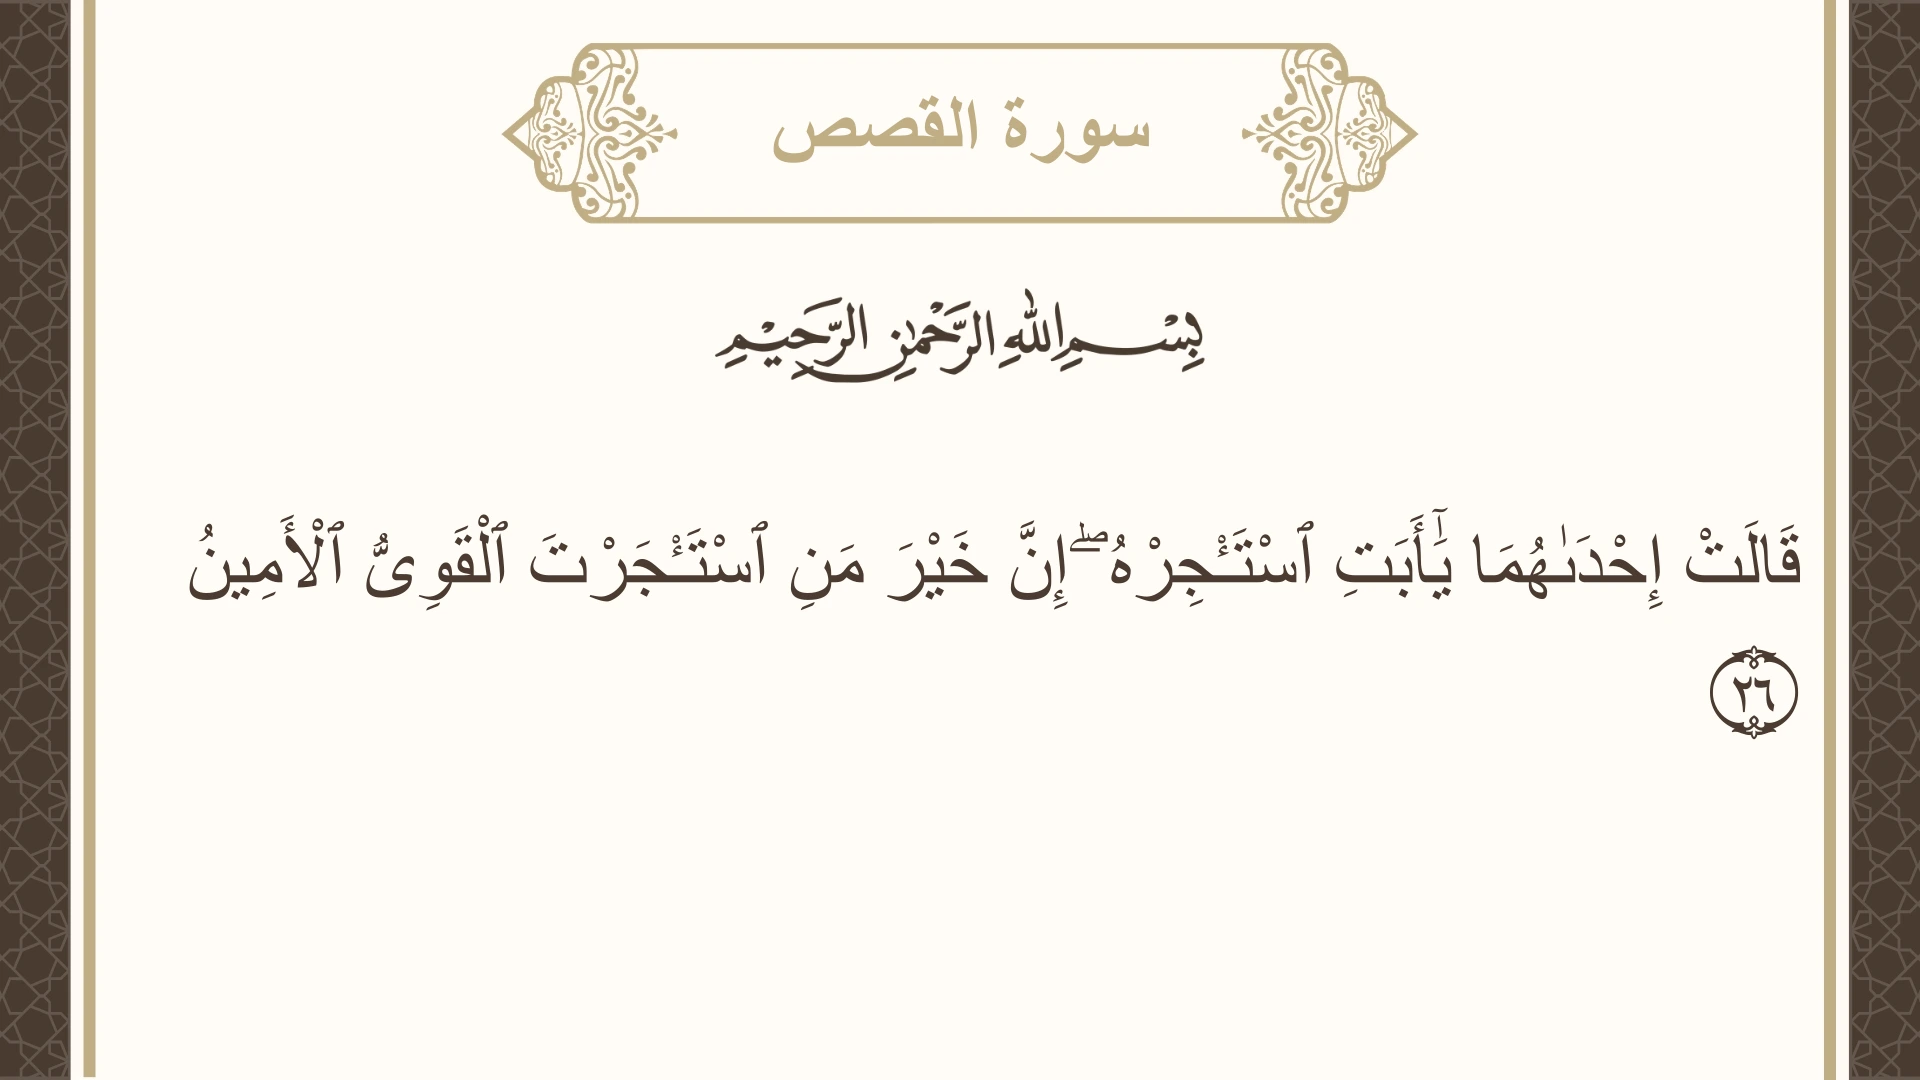 سورة القصص
بِسْمِ اللهِ الرَّحْمٰنِ الرَّحِيْمِ
قَالَتْ إِحْدَىٰهُمَا يَٰٓأَبَتِ ٱسْتَـْٔجِرْهُ ۖ إِنَّ خَيْرَ مَنِ ٱسْتَـْٔجَرْتَ ٱلْقَوِىُّ ٱلْأَمِينُ
٢٦